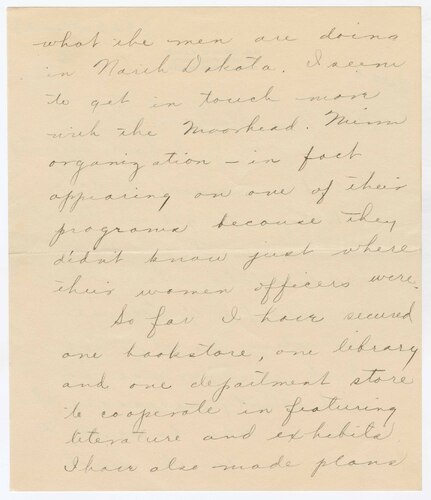 what the men are doing
in North Dakota. I seem
to get in touch more
with the Moorhead. Minn
organization - in fact
appearing on one of their
programs because they
didn't know just where
their women officers were.
So far I have secured
one bookstore, one library
and one department store
to cooperate in featuring
literature and exhibits.
I have also made plans